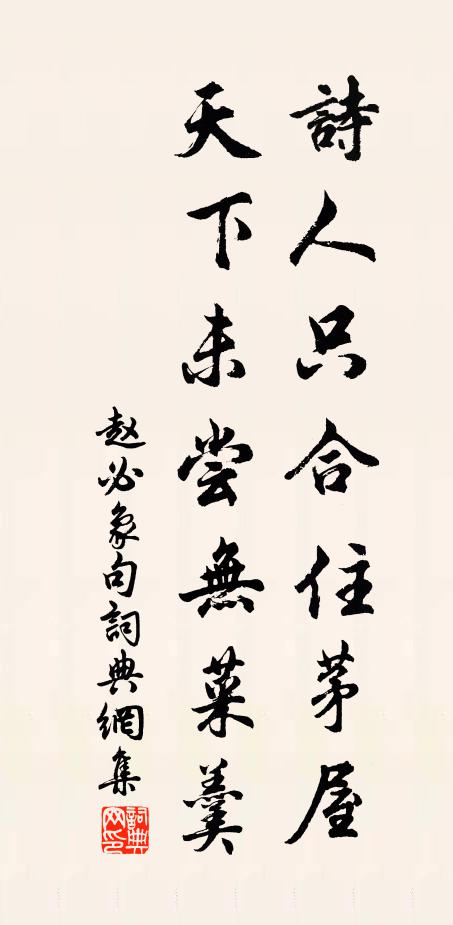 詩人只合住茅屋
天下未尝無菜羹
赵必象句詞典網集
詞典网印